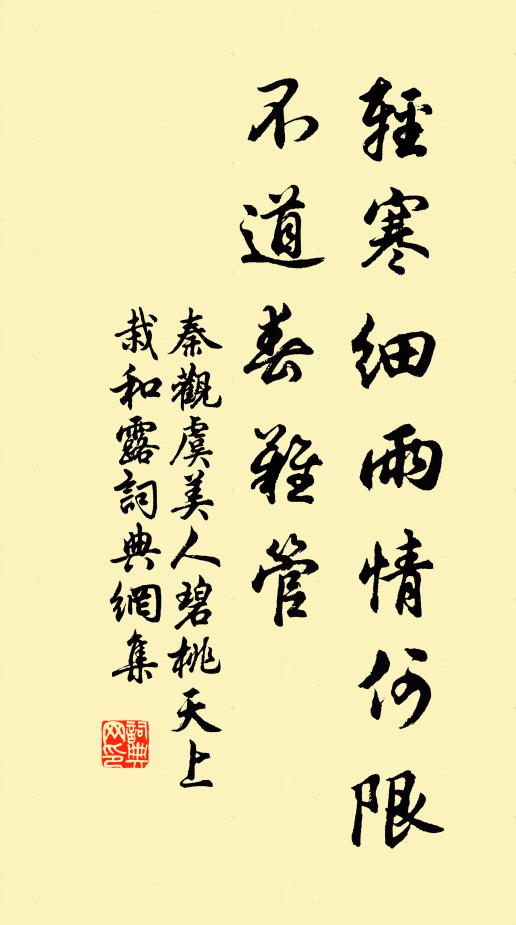 輕寒細雨情何限
不道春難管
秦觀虞美人碧桃天上
栽和露詞典網集
詞典網印